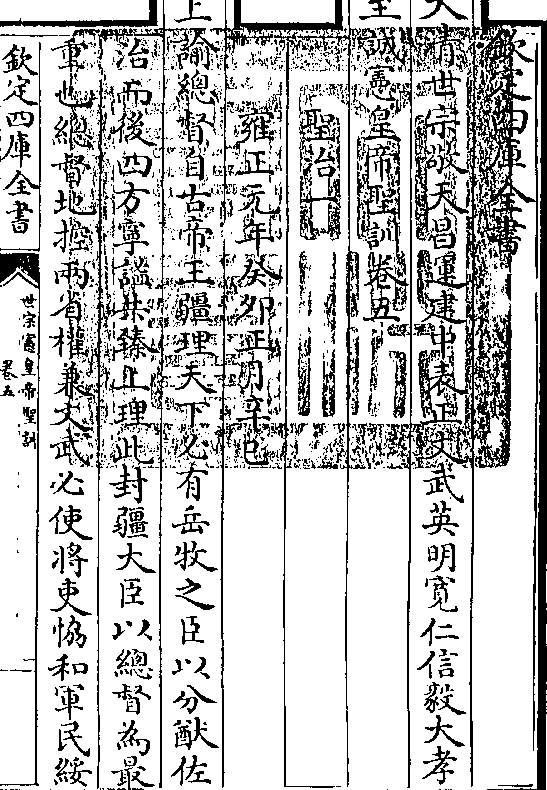 欽定四庫全書
大清世宗敬天昌運建中表正文武英明寬仁信毅大孝
至誠憲皇帝聖訓卷五
聖治一
雍正元年癸卯正月辛巳
上諭總督自古帝王疆理天下必有岳牧之臣以分猷佐
治而後四方寧謐共臻上理此封疆大臣以總督為最
重也總督地控兩省權兼文武必使將吏恊和軍民綏
欽定四庫全書
世宗憲皇帝聖訓
卷五